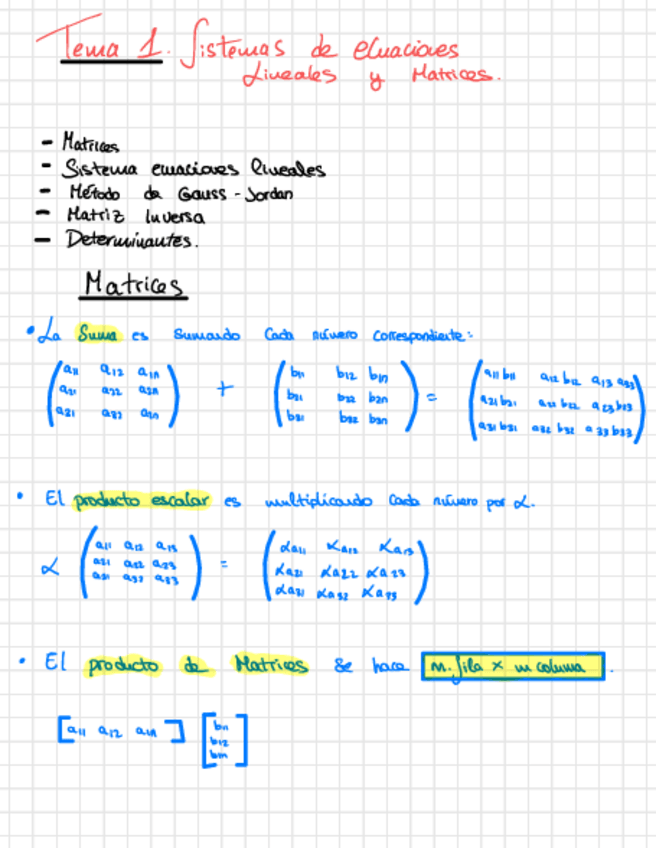 Tema 1. Sistemas de ecuaciones
Lineales y Matrices.
- Matrices
- Sistema ecuaciones lineales
- Método de Gauss-Jordan
- Matriz Inversa
- Determinantes.
Matrices
• La Suma es sumando cada número correspondiente:
a11 a12 a1n b11 b12 b1n a11 b11 a12 b12 a13
a21 a22 a2n + b22 b2n = a21 b21 a22 b22 a23 b23
a31 b32 b3n a31 b31 a32 b32 a33 b33
• El producto escalar es multiplicando cada número por α.
a11 a12 a13 αa11 αa12 αa13
α a21 a22 a23 = αa21 αa22 αa23
a31 a32 a33 αa31 αa32
• El producto de Matrices se hace n. fila x m columna.
[a11 a12 a1n] [b11
b12
b1n]